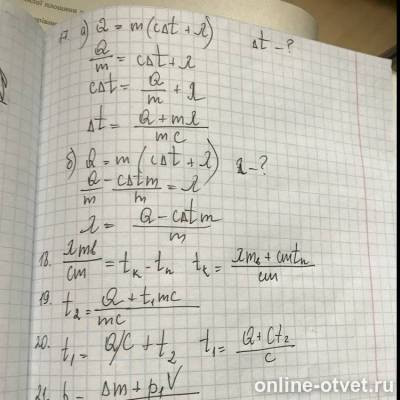 17. а) Q = m(cΔt + λ)   Δt - ?
Q/m = cΔt + λ
cΔt = Q/m + λ
Δt = (Q + mλ)/(mc)
б) Q = m(cΔt + λ)   λ - ?
Q/m - cΔtm/m = λ
λ = (Q - cΔtm)/m
18. λmв/cm = tк - tп   tк = (λmв + cmtп)/cm
19. t₂ = (Q + t₁mc)/(mc)
20. t₁ = Q/C + t₂   t₁ = (Q + Ct₂)/c
21. Δm + p₁V
online-otvet.ru